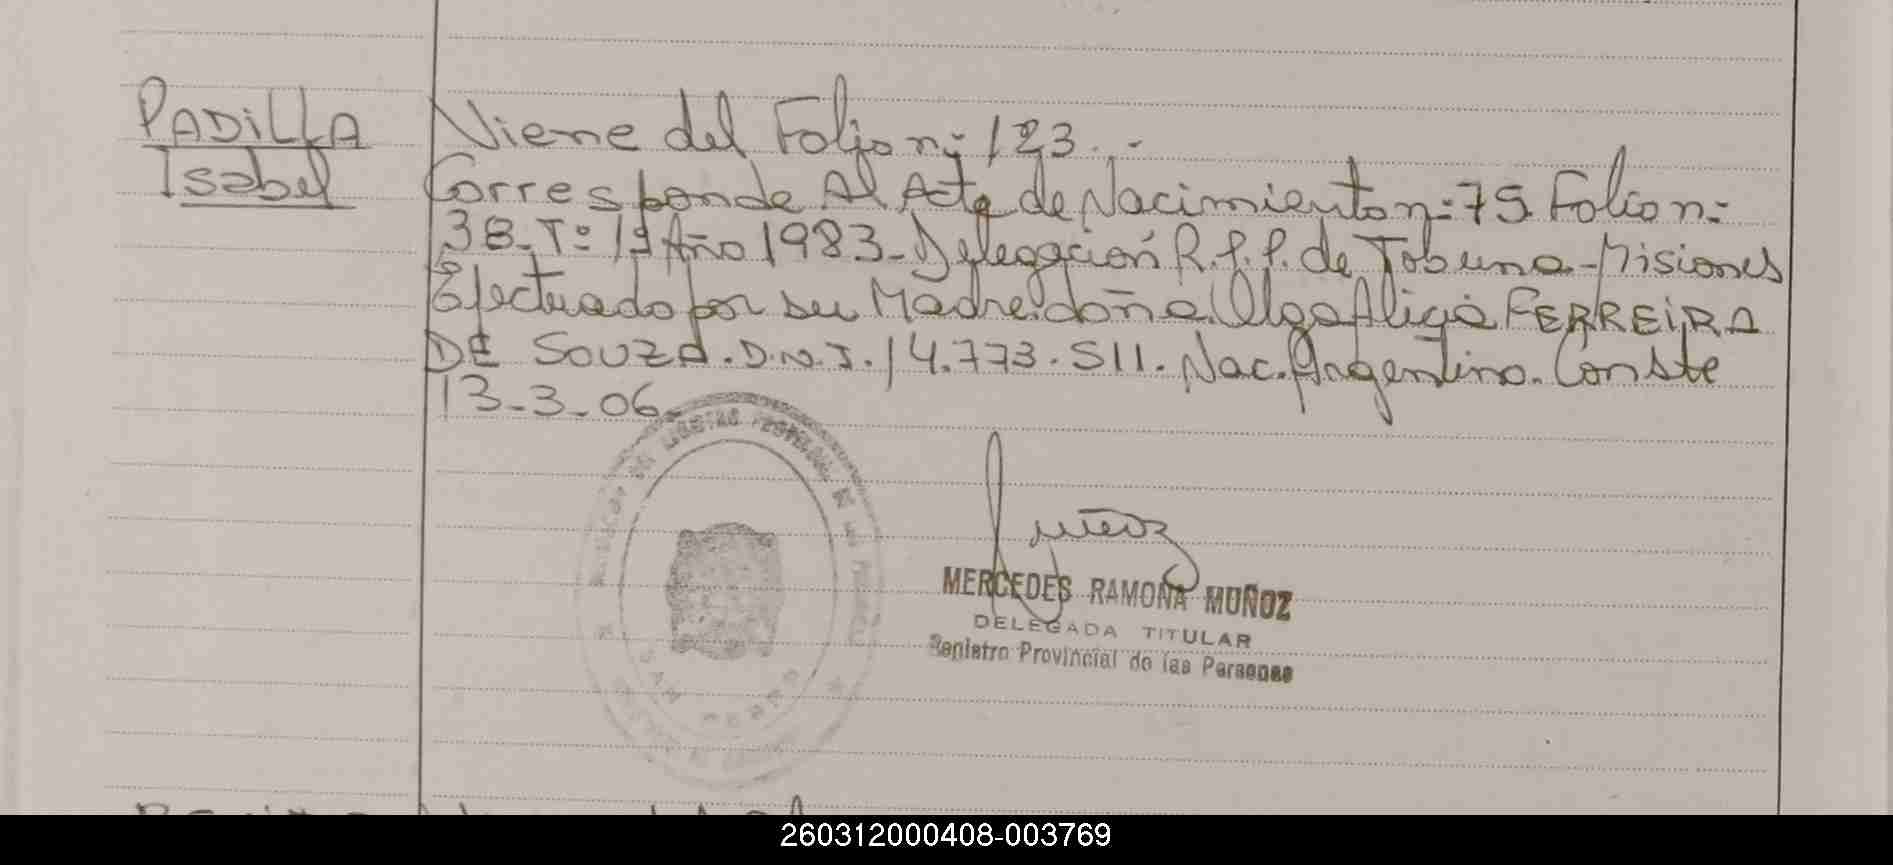 PADILLA
Isabel
Viene del Folio nº 123.-
Corresponde Al Acta de Nacimiento nº 75 Folio nº
38-Tº 1º Año 1983-Delegación R.P.P. de Tobuna-Misiones
Efectuado por su Madre doña Olga Alicia FERREIRA
DE SOUZA. D.N.I. 14.773.511. Nac. Argentina. Conste
13-3-06
SAN PEDRO
MERCEDES RAMONA MUÑOZ
DELEGADA TITULAR
Registro Provincial de las Personas
260312000408-003769